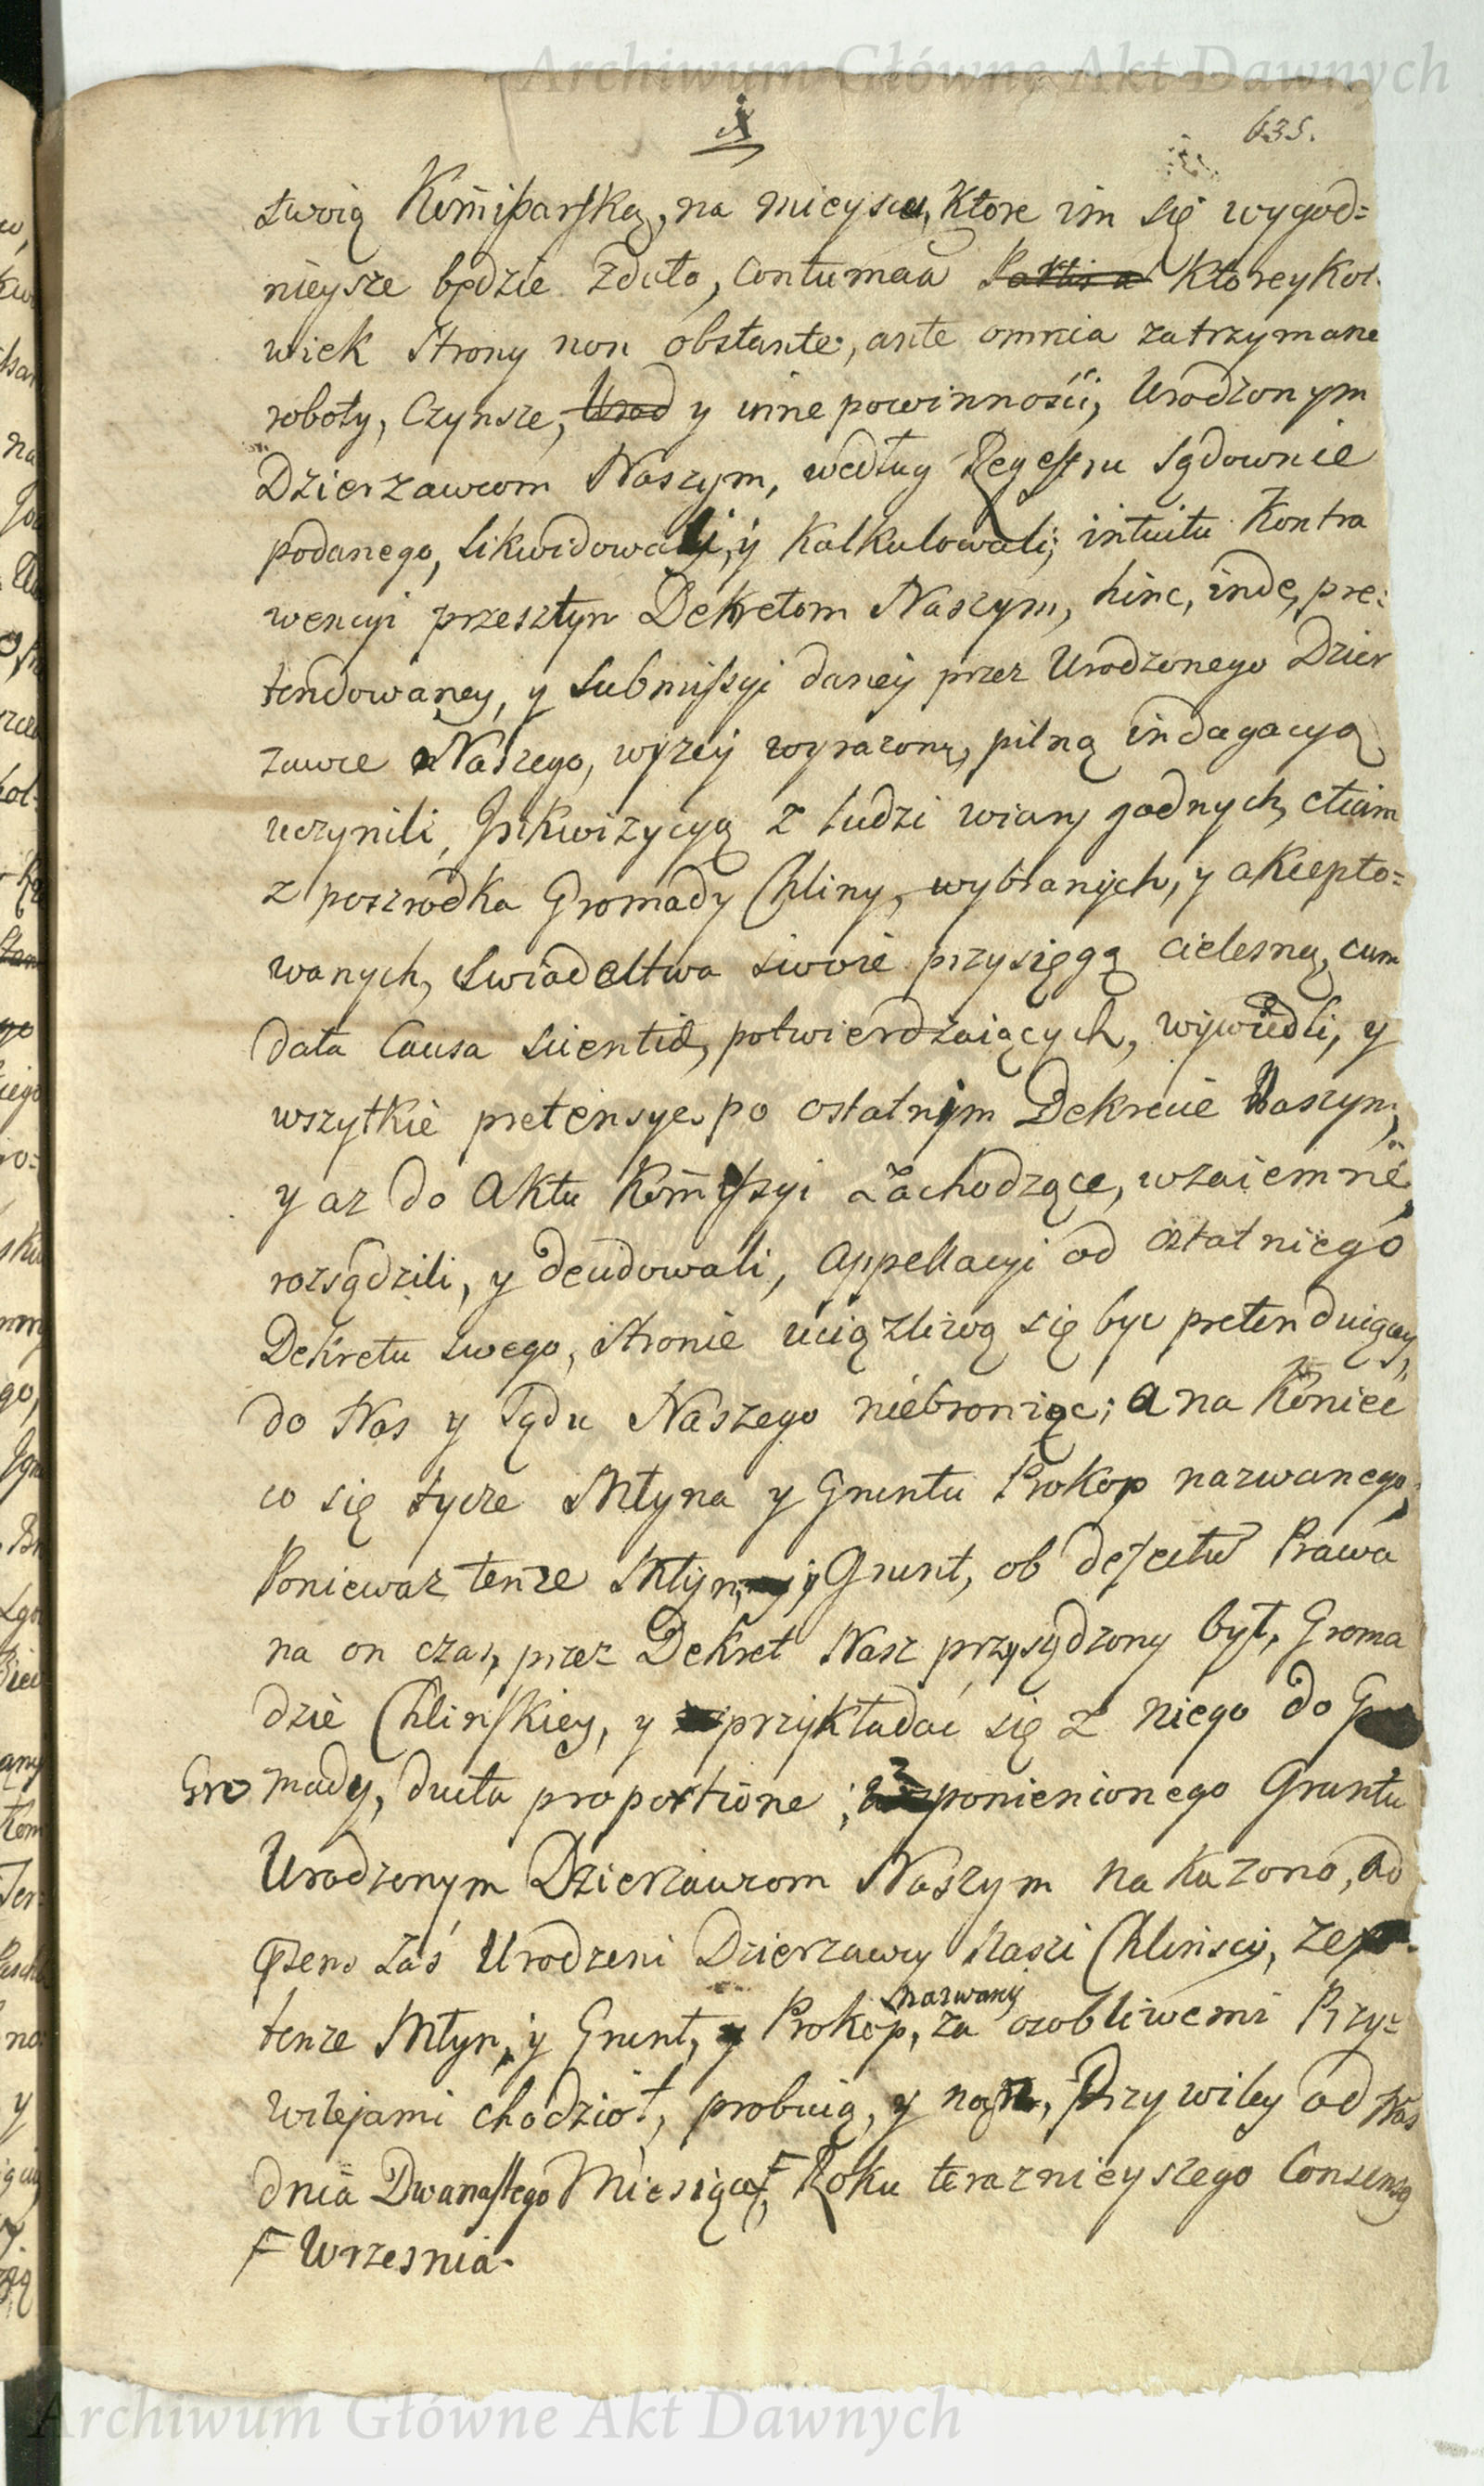 Archiwum Główne Akt Dawnych
635.
swoią Kom̄iſsarſką, na mieyscu, ktore im się wygod=
nieysze będzie zdało, Contumacia ktoreykol-
wiek Strony non obstante, ante omnia zatrzymane
roboty, Czynsze, Urod y inne powinności, Urodzonym
Dzierzawcom Naszym, według Regeſtru Sądownie
podanego, likwidowali, y kalkulowali; intuitu Kontra
wencyi przeszłym Dekretom Naszym, hinc, inde, pre=
tendowaney, y Submiſsyi daney przez Urodzonego Dzier
zawce Naszego, wyzey wyrazoney, pilną indagacyą
uczynili, Inkwizycyą z ludzi wiary godnych, etiam
z poszrodka Gromady Chliny, wybranych, y akcepto=
wanych, Swiadectwa swoie przysięgą cielesną, cum
data Causa Scientiæ, potwierdzaiących, wywiedli, y
wszytkie pretensye po ostatnim Dekrecie Naszym,
y az do Aktu Kom̄iſsyi zachodzące, wzaiemnie
rozsądzili, y decidowali, Appellacyi od ostatniego
Dekretu swego, Stronie uciązliwą się byc pretenduiącey,
do Nas y Sądu Naszego niebroniąc; a na koniec
co się tycze Młyna y Gruntu Prokop nazwanego,
Poniewaz tenze Młyn, y Grunt, ob defectu Prawa
na on czas, przez Dekret Nasz przysądzony był, Groma
dzie Chlinſkiey, y przykładać się z niego do
Gro mady, ducta proportione, wzponienionego Gruntu
Urodzonym Dzierzawcom Naszym nakazono, ad
præsens zaś Urodzeni Dzierzawcy Naszi Chlinscy, ze
nazwany
tenze Młyn, y Grunt, Prokop, za osobliwemi Przy=
wilejami chodził, probuią, y nań, Przywiley od Nas
dnia Dwanaſtego Miesiąca F Roku teraznieyszego Consens
F Wrzesnia.
Archiwum Główne Akt Dawnych